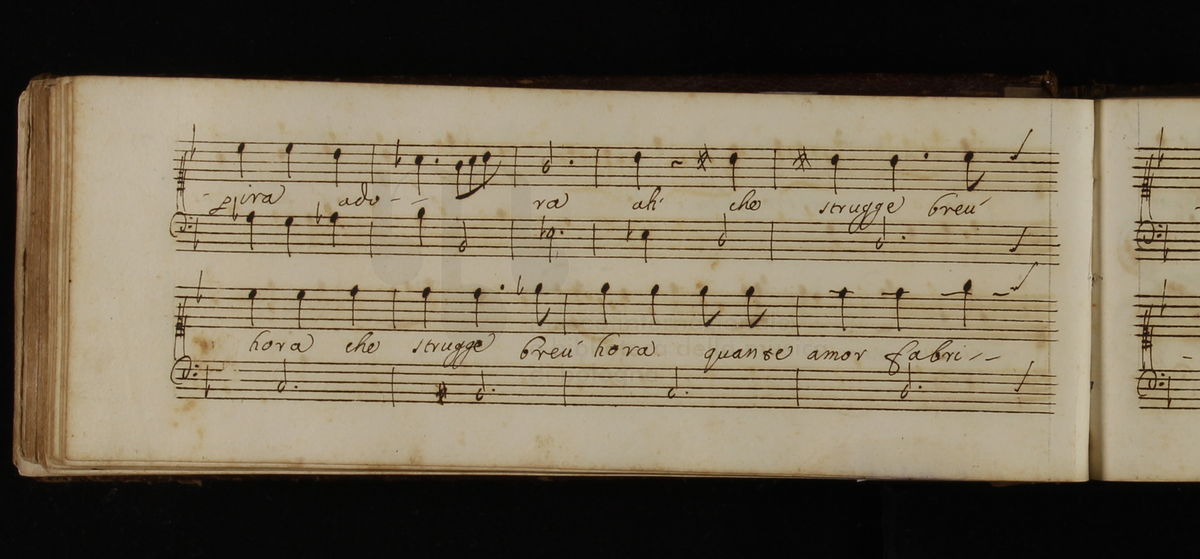 - spira ado - - ra ah che strugge breu'
hora che strugge breu' hora quante amor fabri - -